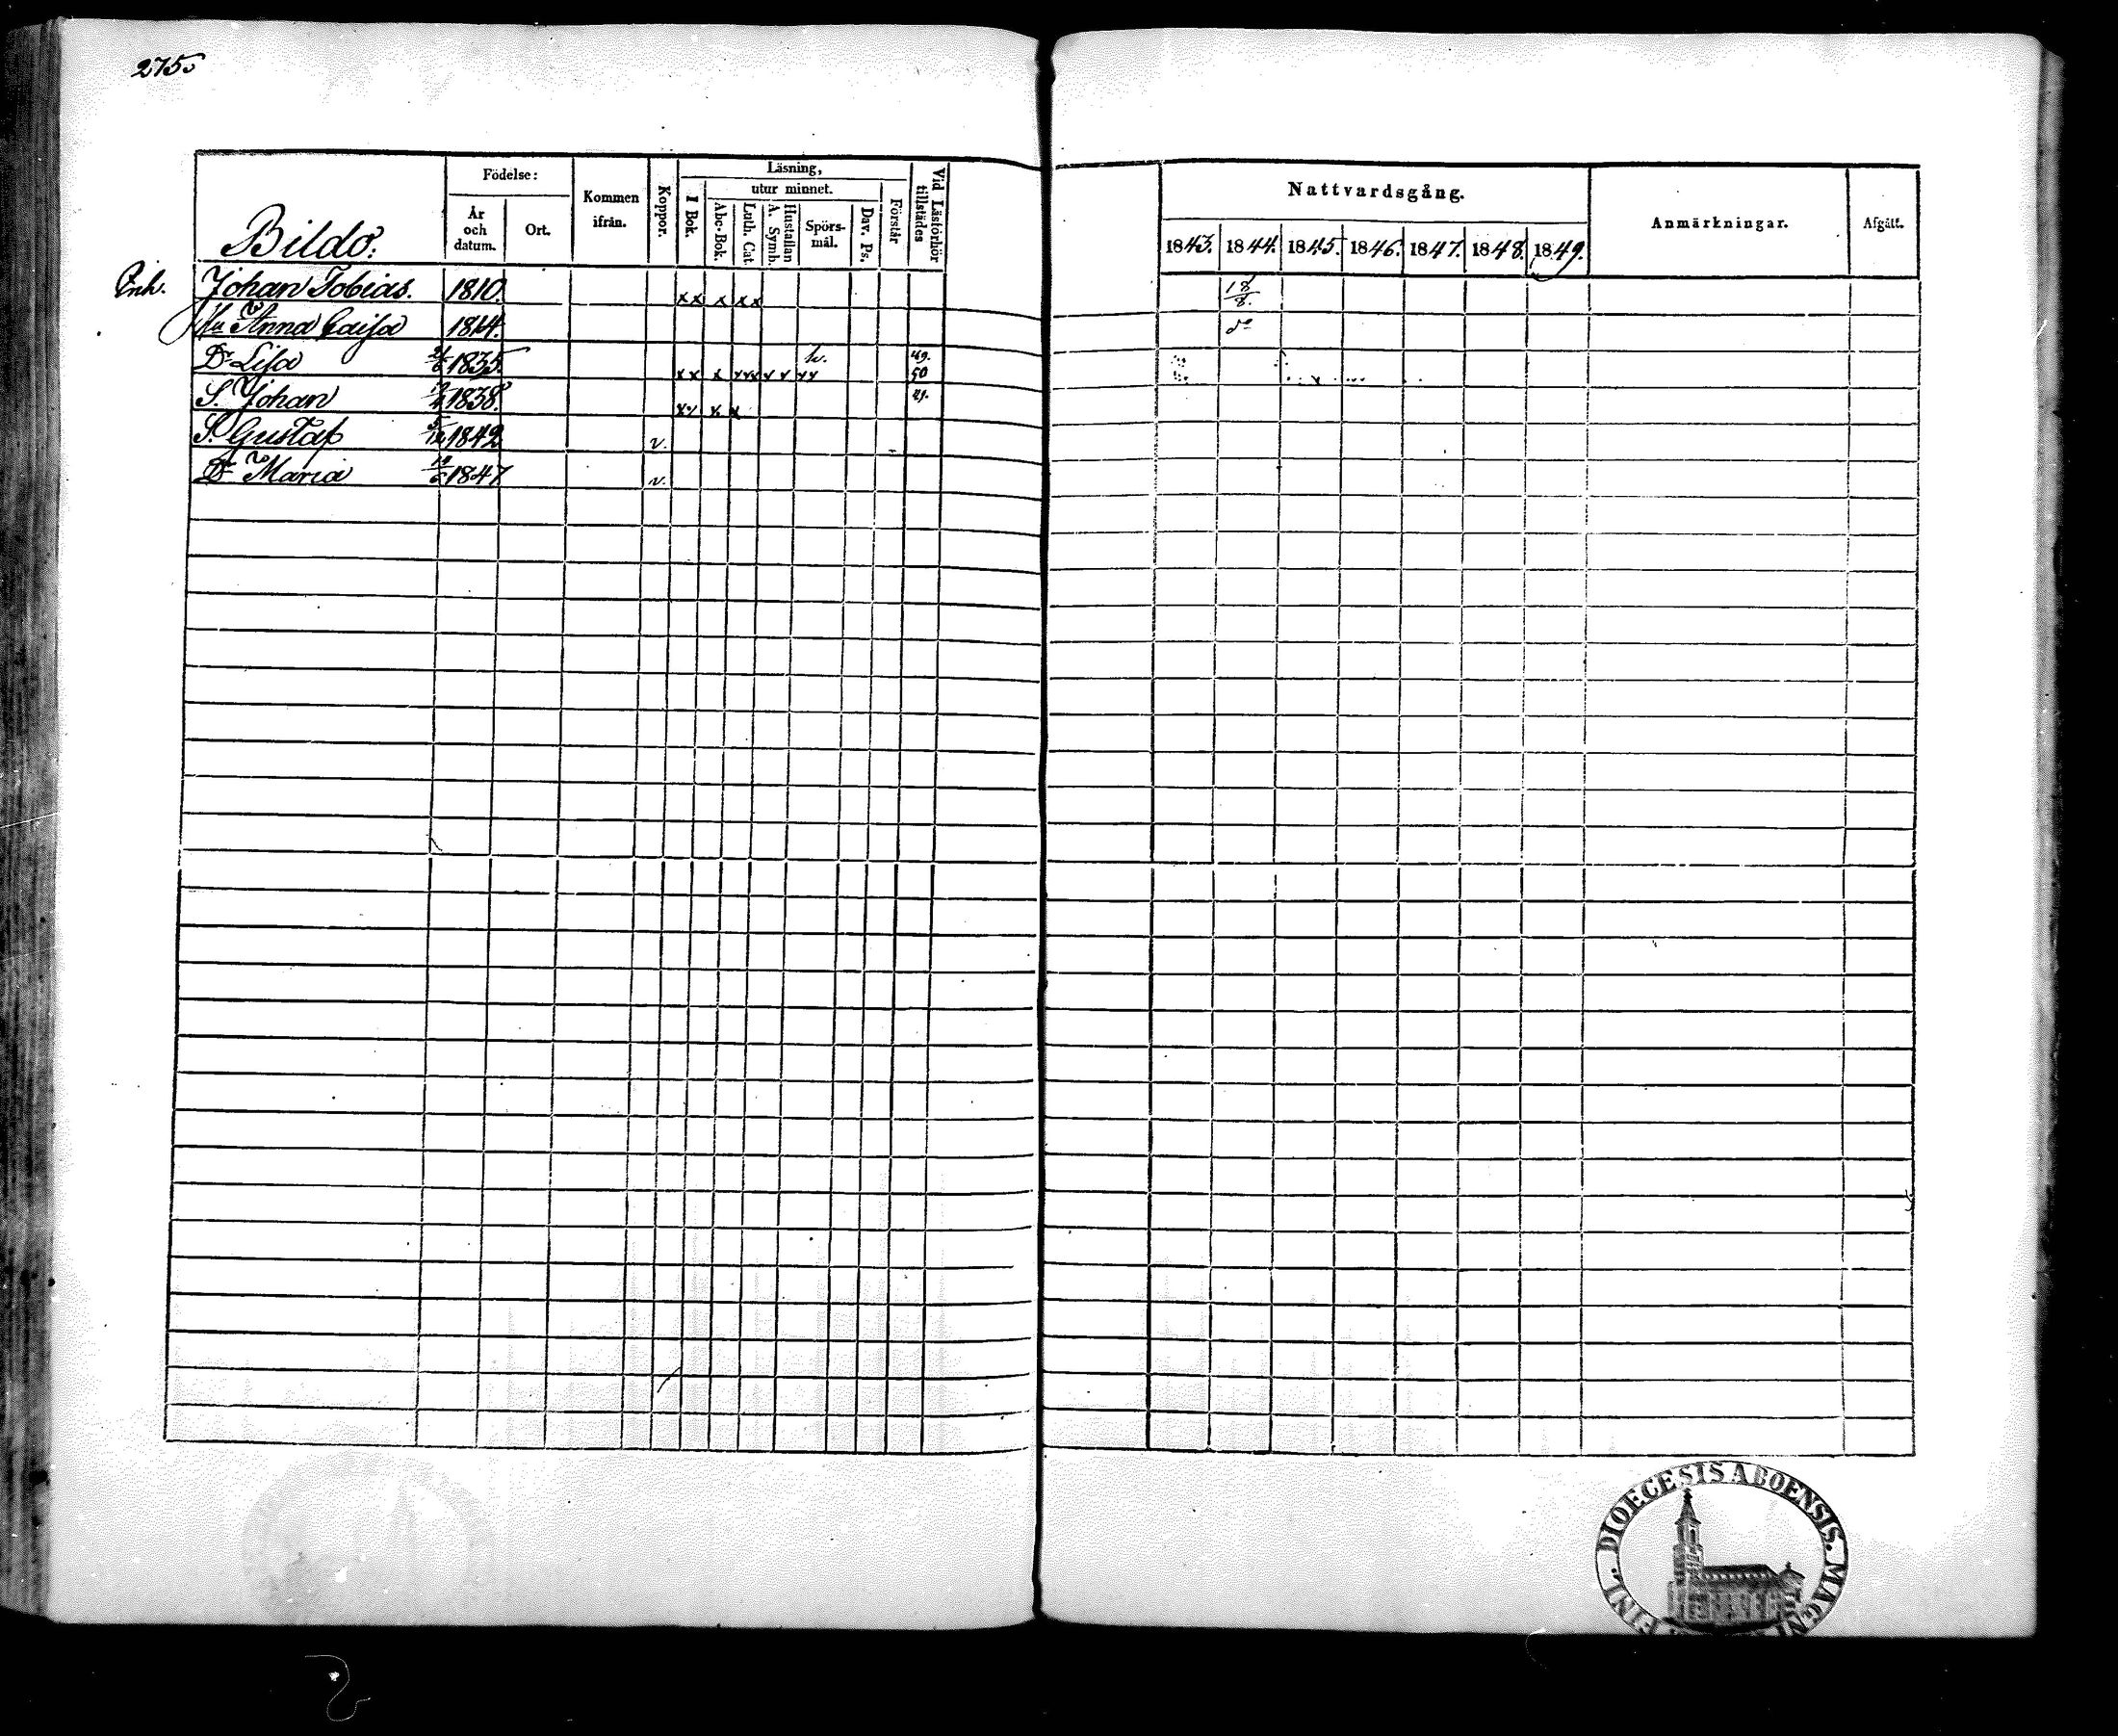 275
Födelse:
Kommen ifrån.
Koppor.
Läsning,
utur minnet.
I Bok.
Abc-Bok.
Luth. Cat.
Hustaflan A. Symb.
Spörsmål.
Dav. Ps.
Förstår
Vid Läsförhör tillstädes
År och datum.
Ort.
Bildö.
Nattvardsgång.
Anmärkningar.
Afgått.
1843. 1844. 1845. 1846. 1847. 1848. 1849.
Inh. Johan Tobias. 1810. xx x xx 18/8.
Hu Anna Caisa 1814. do
Dr Lisa 1835. 49. 50
S. Johan 1838. 49.
S. Gustaf 5/12 1842 v.
Dr Maria 1847 v.
DIOECESIS ABOENSIS. MAGNI FINL.